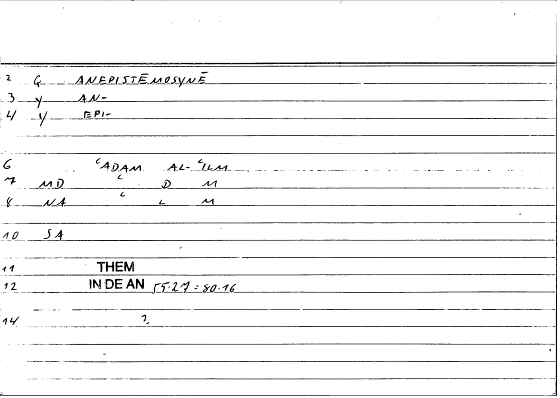 2 G ANEPISTĒMOSYNĒ
3 Y AN-
4 Y EPI-
6 ʿADAM AL-ʿILM
7 MD ʿ D M
8 NA ʿ L M
10 SA
11 THEM
12 IN DE AN 55.27 = 80.16
14 2.